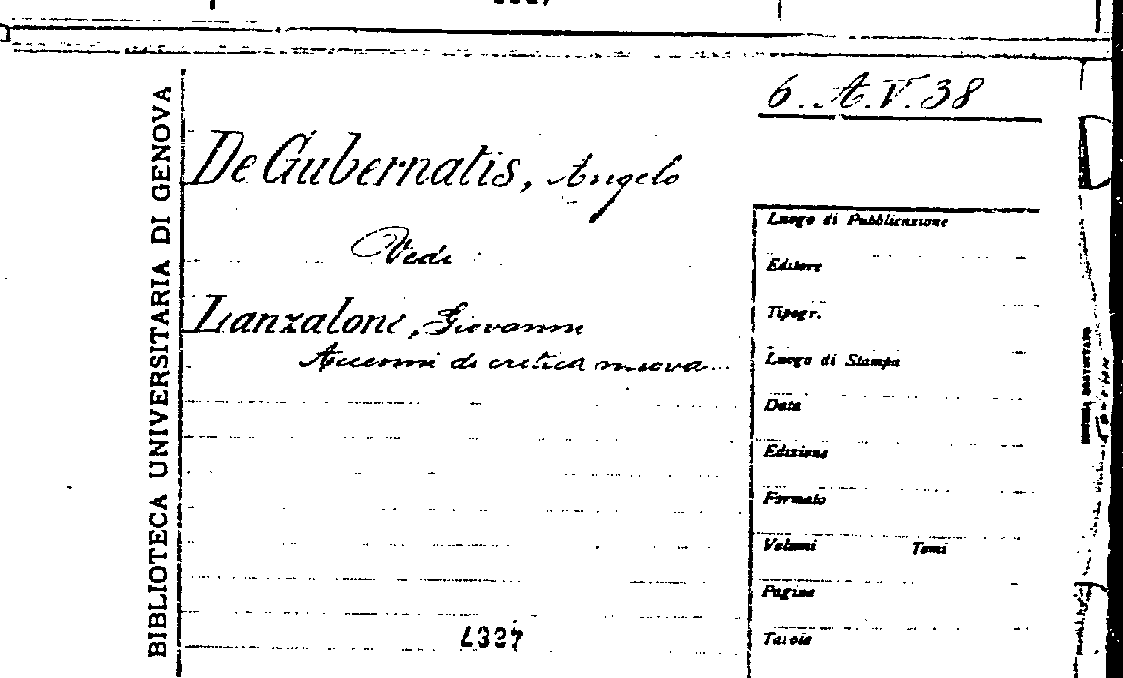 6. A.V.38
BIBLIOTECA UNIVERSITARIA DI GENOVA
De Gubernatis, Angelo
Vedi
Lanzalone, Giovanni
Accenni di critica nuova...
Luogo di Pubblicazione
Editore
Tipogr.
Luogo di Stampa
Data
Edizione
Formato
Volumi Tomi
Pagine
Tavole